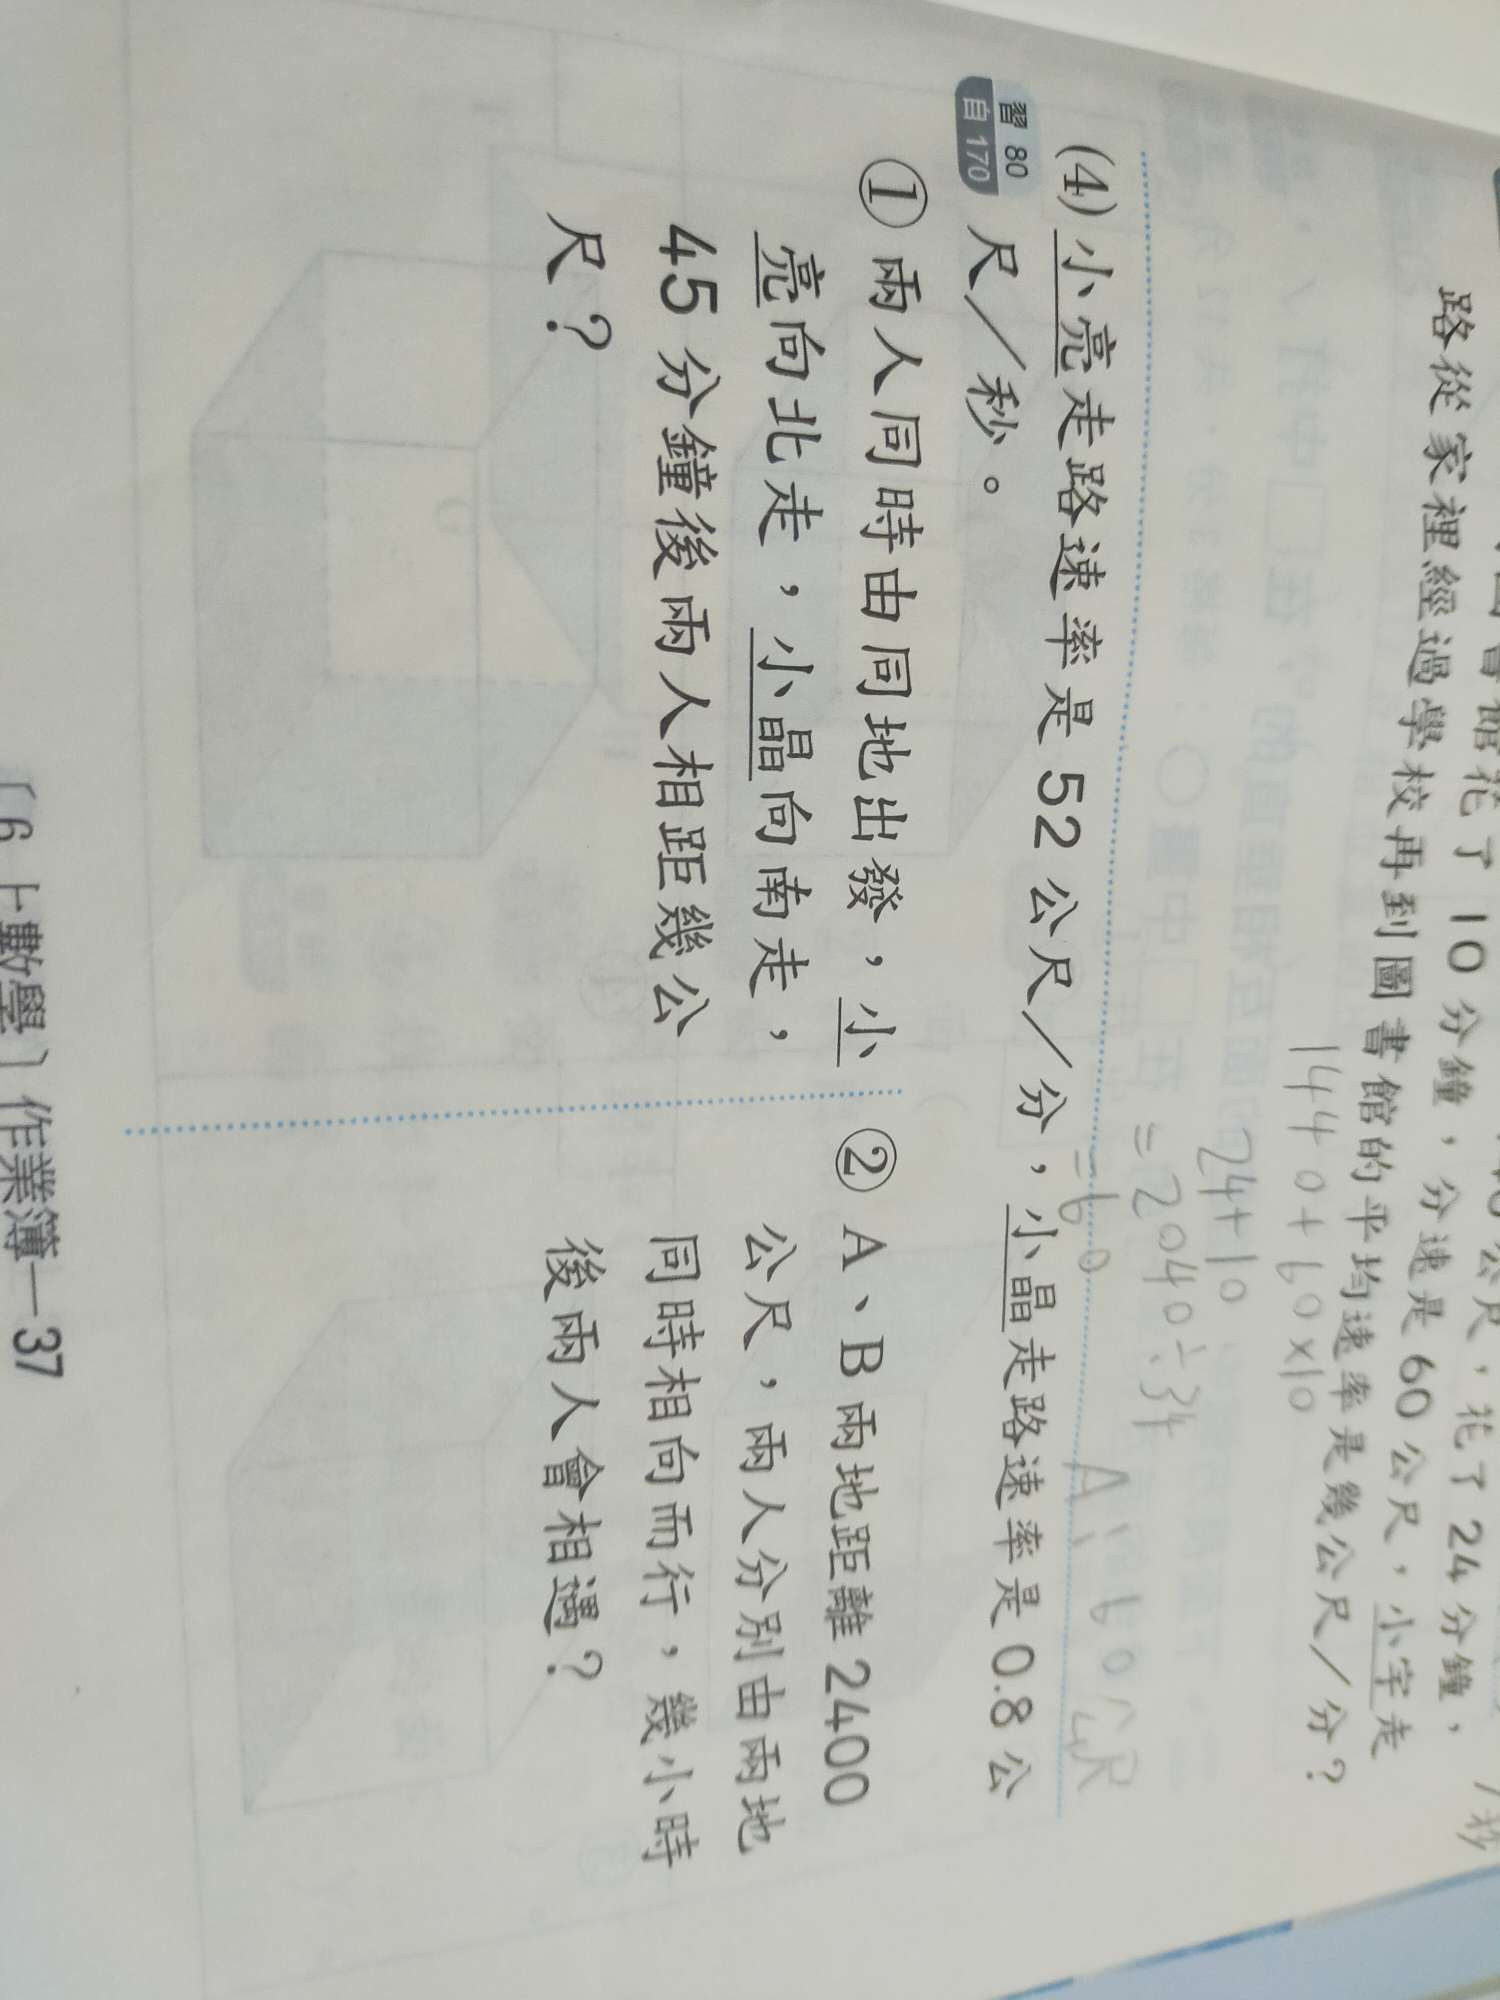 館花了 10 分鐘，分速是 60 公尺，小宇走
路從家裡經過學校再到圖書館的平均速率是幾公尺／分？
公尺，花了 24 分鐘，
/秒
1440+60×10
24+10
=2040÷34
=60
A：60公尺
(4) 小亮走路速率是 52 公尺／分，小晶走路速率是 0.8 公
習 80
自 170
尺／秒。
① 兩人同時由同地出發，小
亮向北走，小晶向南走，
45 分鐘後兩人相距幾公
尺？
② A、B 兩地距離 2400
公尺，兩人分別由兩地
同時相向而行，幾小時
後兩人會相遇？
〔6上數學〕作業簿—37